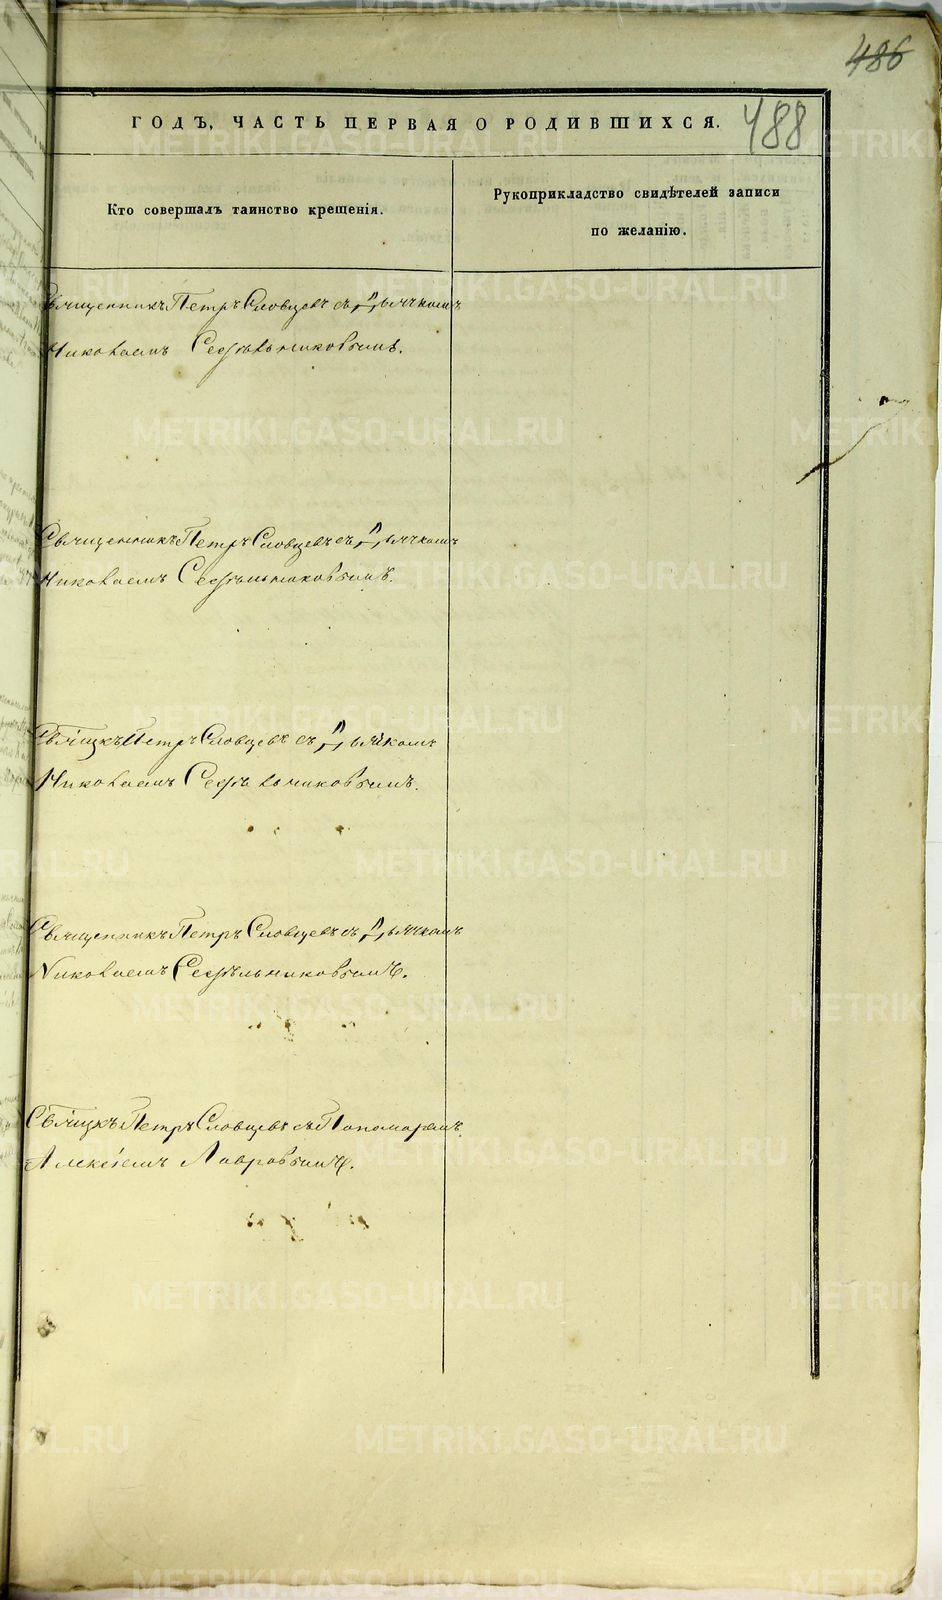 486
488
ГОДЪ, ЧАСТЬ ПЕРВАЯ О РОДИВШИХСЯ.
Кто совершалъ таинство крещенія.
Рукоприкладство свидѣтелей записи
по желанію.
Священникъ Петръ Словцевъ съ Дьячкомъ
Николаемъ
Священникъ Петръ Словцевъ съ Дьячкомъ
Николаемъ
Свящкъ Петръ Словцевъ съ Дьякомъ
Николаемъ
Священникъ Петръ Словцевъ съ Дьячкомъ
Николаемъ
Свящкъ Петръ Словцевъ съ Пономаремъ
Алексѣемъ Лавровымъ.
METRIKI.GASO-URAL.RU